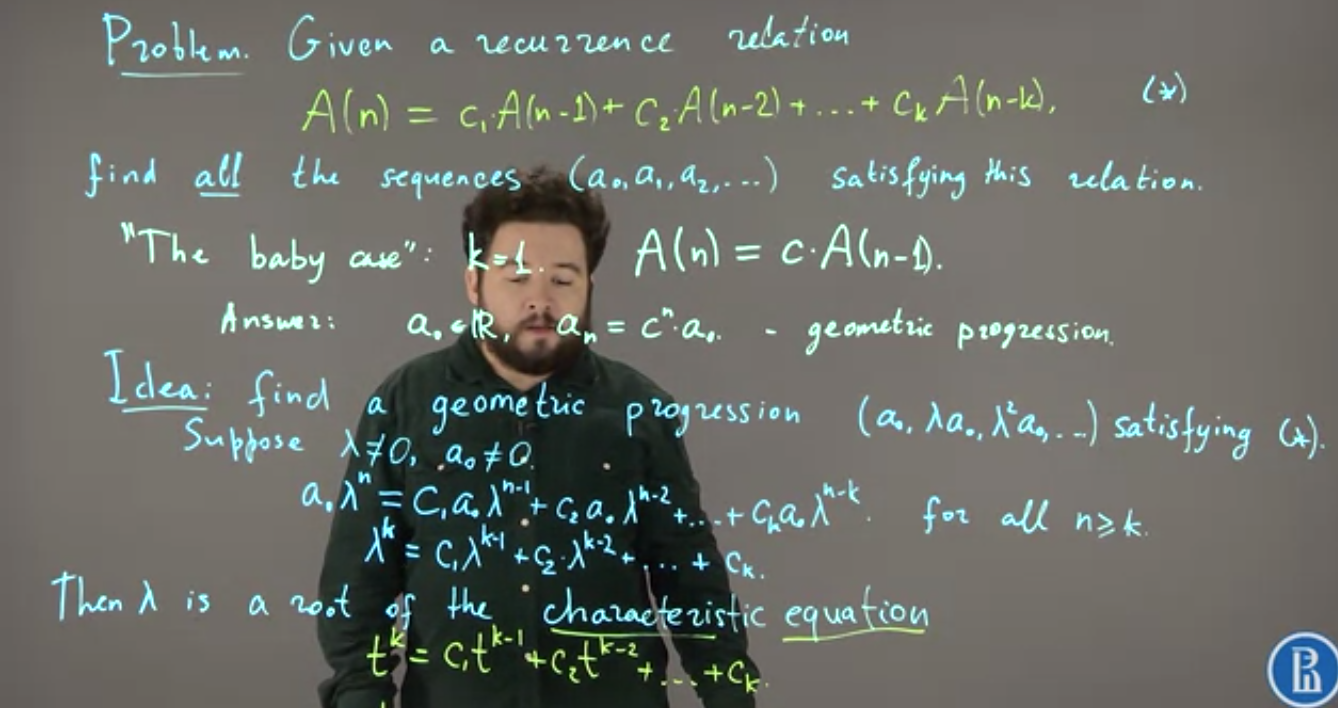 Problem. Given a recurrence relation
A(n) = c₁·A(n-1) + c₂·A(n-2) + ... + cₖ A(n-k), (*)
find all the sequences (a₀, a₁, a₂, ...) satisfying this relation.
"The baby case": k=1. A(n) = c·A(n-1).
Answer: a₀ ∈ ℝ, aₙ = cⁿ·a₀. - geometric progression.
Idea: find a geometric progression (a₀, λa₀, λ²a₀, ...) satisfying (*).
Suppose λ≠0, a₀≠0.
a₀λⁿ = c₁a₀λⁿ⁻¹ + c₂a₀λⁿ⁻² + ... + cₖa₀λⁿ⁻ᵏ. for all n≥k.
λᵏ = c₁λᵏ⁻¹ + c₂·λᵏ⁻² + ... + cₖ.
Then λ is a root of the characteristic equation
tᵏ = c₁tᵏ⁻¹ + c₂tᵏ⁻² + ... + cₖ.